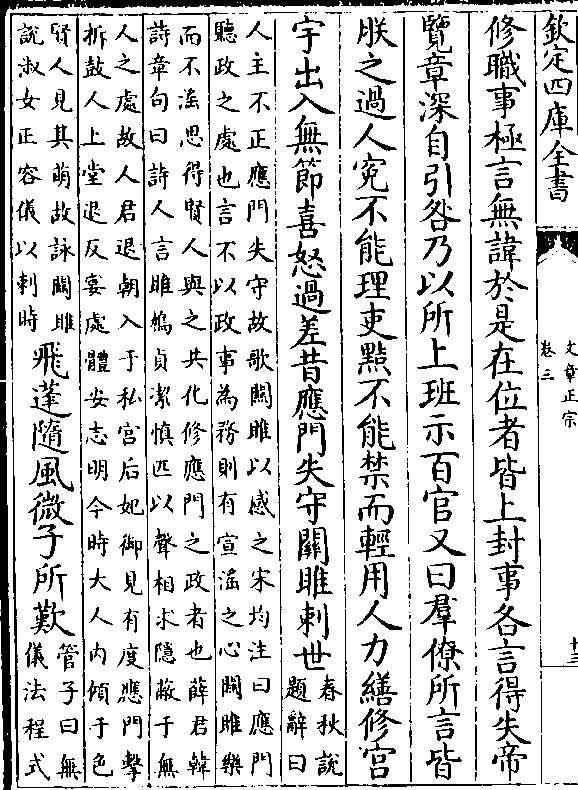 欽定四庫全書
文章正宗
卷三
十三
修職事極言無諱於是在位者皆上封事各言得失帝
覽章深自引咎乃以所上班示百官又曰羣僚所言皆
朕之過人寃不能理吏黠不能禁而輕用人力繕修宮
宇出入無節喜怒過差昔應門失守關雎刺世
春秋說
題辭曰
人主不正應門失守故歌關雎以感之宋均注曰應門
聽政之處也言不以政事為務則有宣滛之心關雎樂
而不滛思得賢人與之共化修應門之政者也薛君韓
詩章句曰詩人言雎鳩貞潔慎匹以聲相求隱蔽于無
人之處故人君退朝入于私宮后妃御見有度應門擊
柝鼓人上堂退反宴處體安志明今時大人内傾于色
賢人見其萌故詠關雎
說淑女正容儀以刺時
飛蓬隨風微子所歎
管子曰無
儀法程式